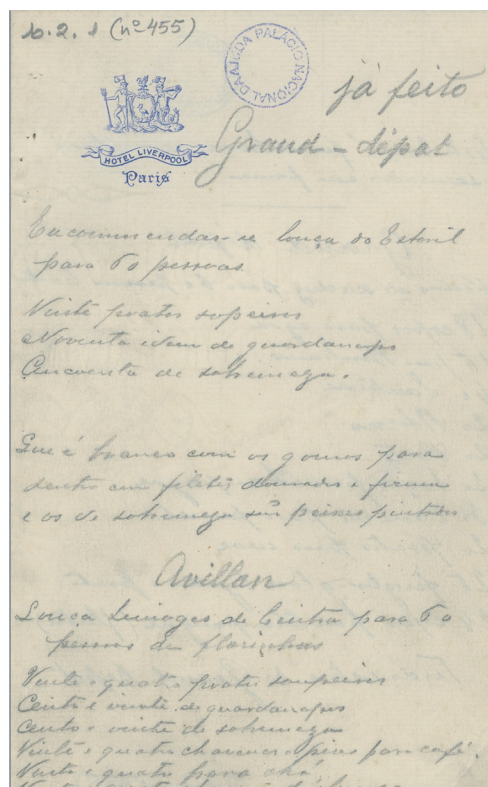 10.2.1 (nº 455)
PALÁCIO NACIONAL DA AJUDA
já feito
HOTEL LIVERPOOL
Paris
Grand-dépot
Encommendar-se louça do Estoril
para 60 pessoas
Vinte pratos sopeiros
Noventa idem de guardanapo
Cincoenta de sobremeza.
Que é branca com os gomos para
dentro com filetes dourados e
e os de sobremeza peixes pintados
Avillan
Louça Limoges de Cintra para 60
pessoas de florinhas
Vinte e quatro pratos soupeiros
Cento e vinte de guardanapos
Cento e vinte de sobremeza
Vinte e quatro chavenas e pires para café.
Vinte e quatro para chá,